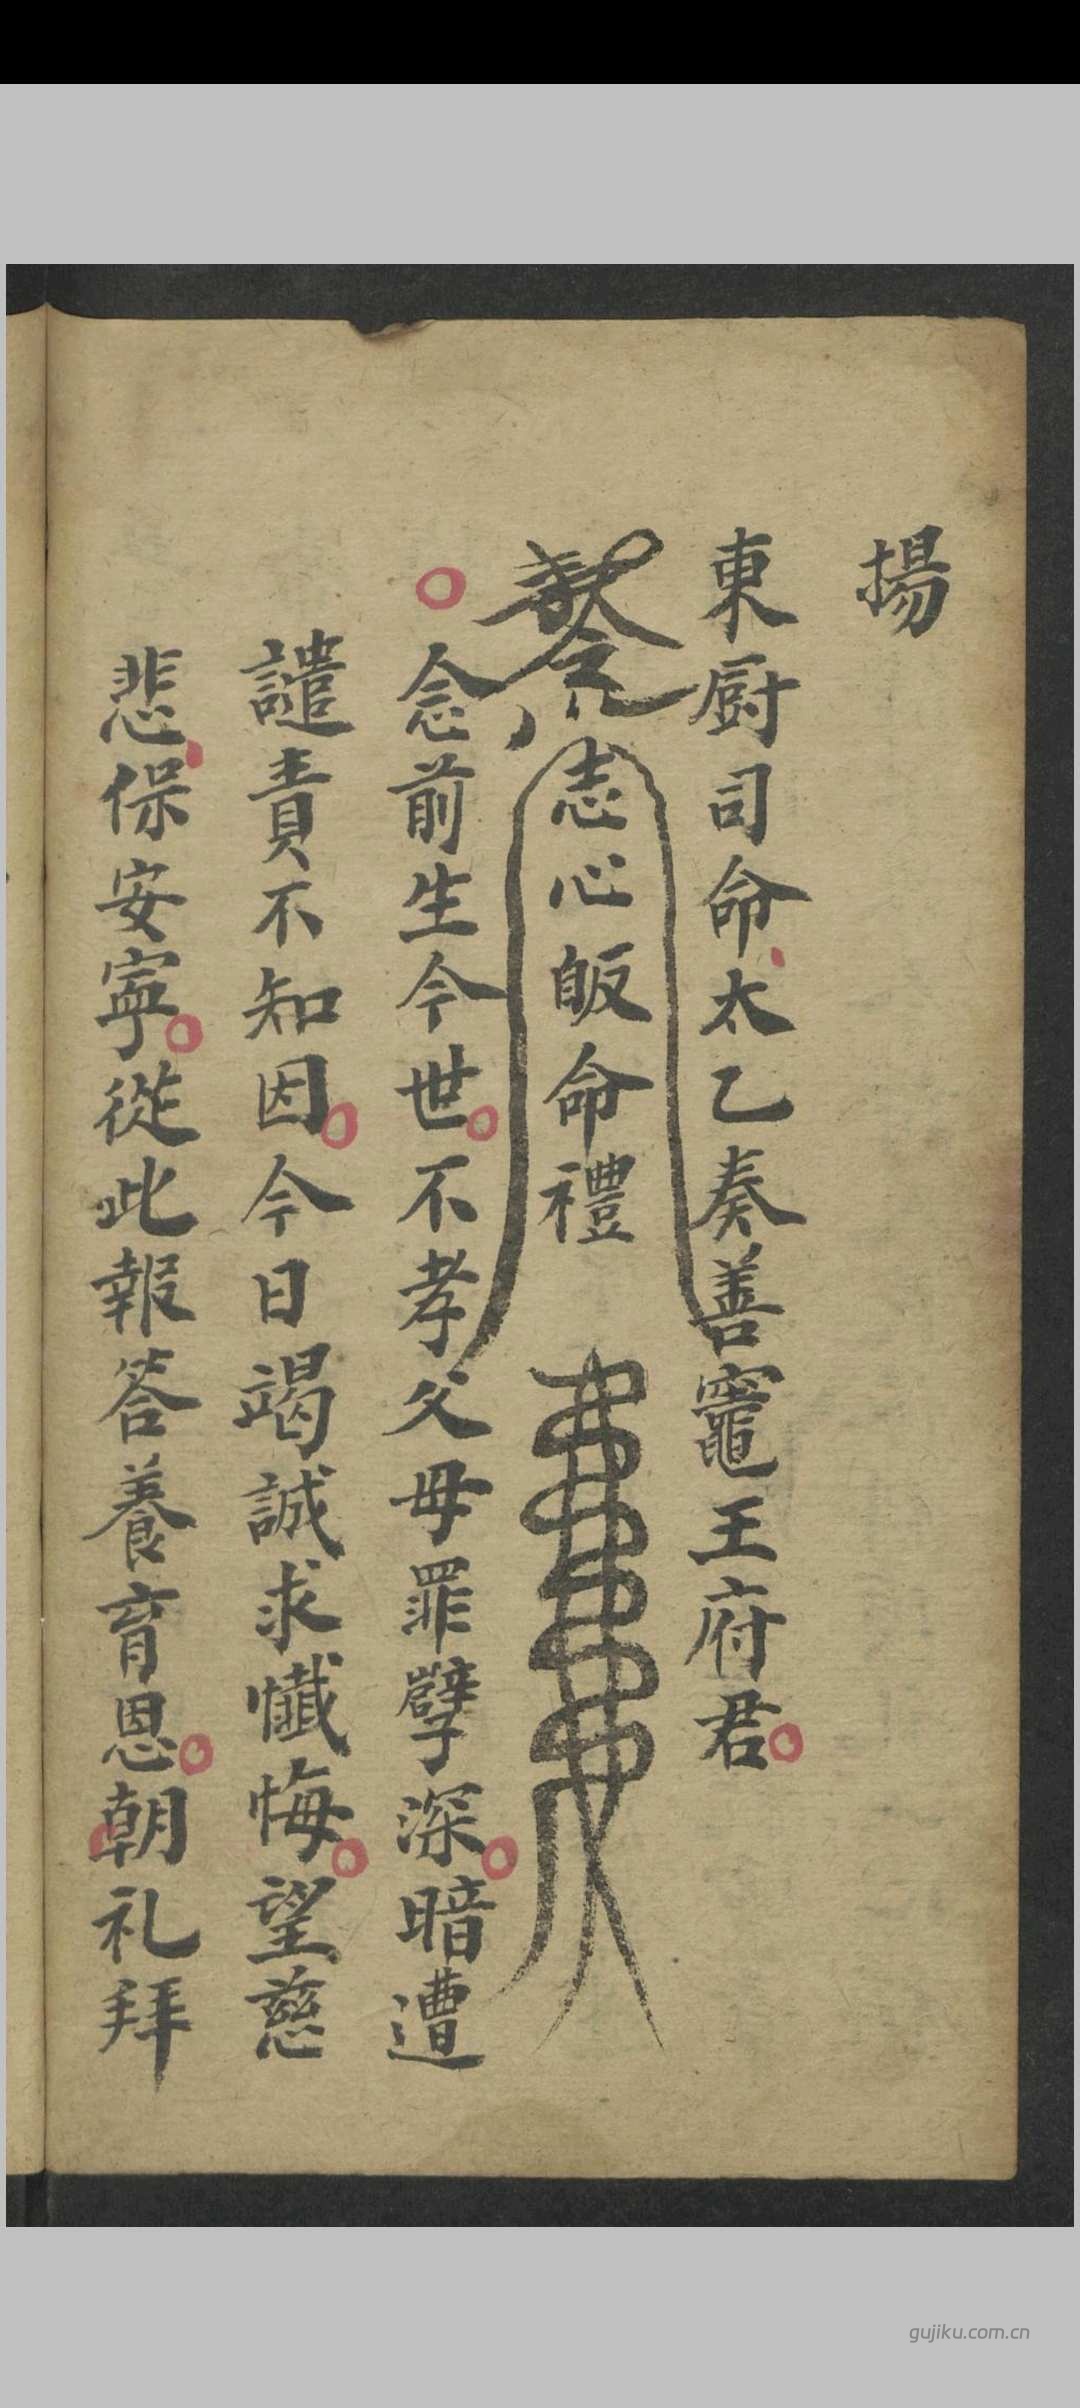 揚
東厨司命太乙奏善竈王府君
志心皈命禮
念前生今世不孝父母罪孽深暗遭
譴責不知因今日竭誠求懺悔望慈
悲保安寧從此報答養育恩朝礼拜
gujiku.com.cn